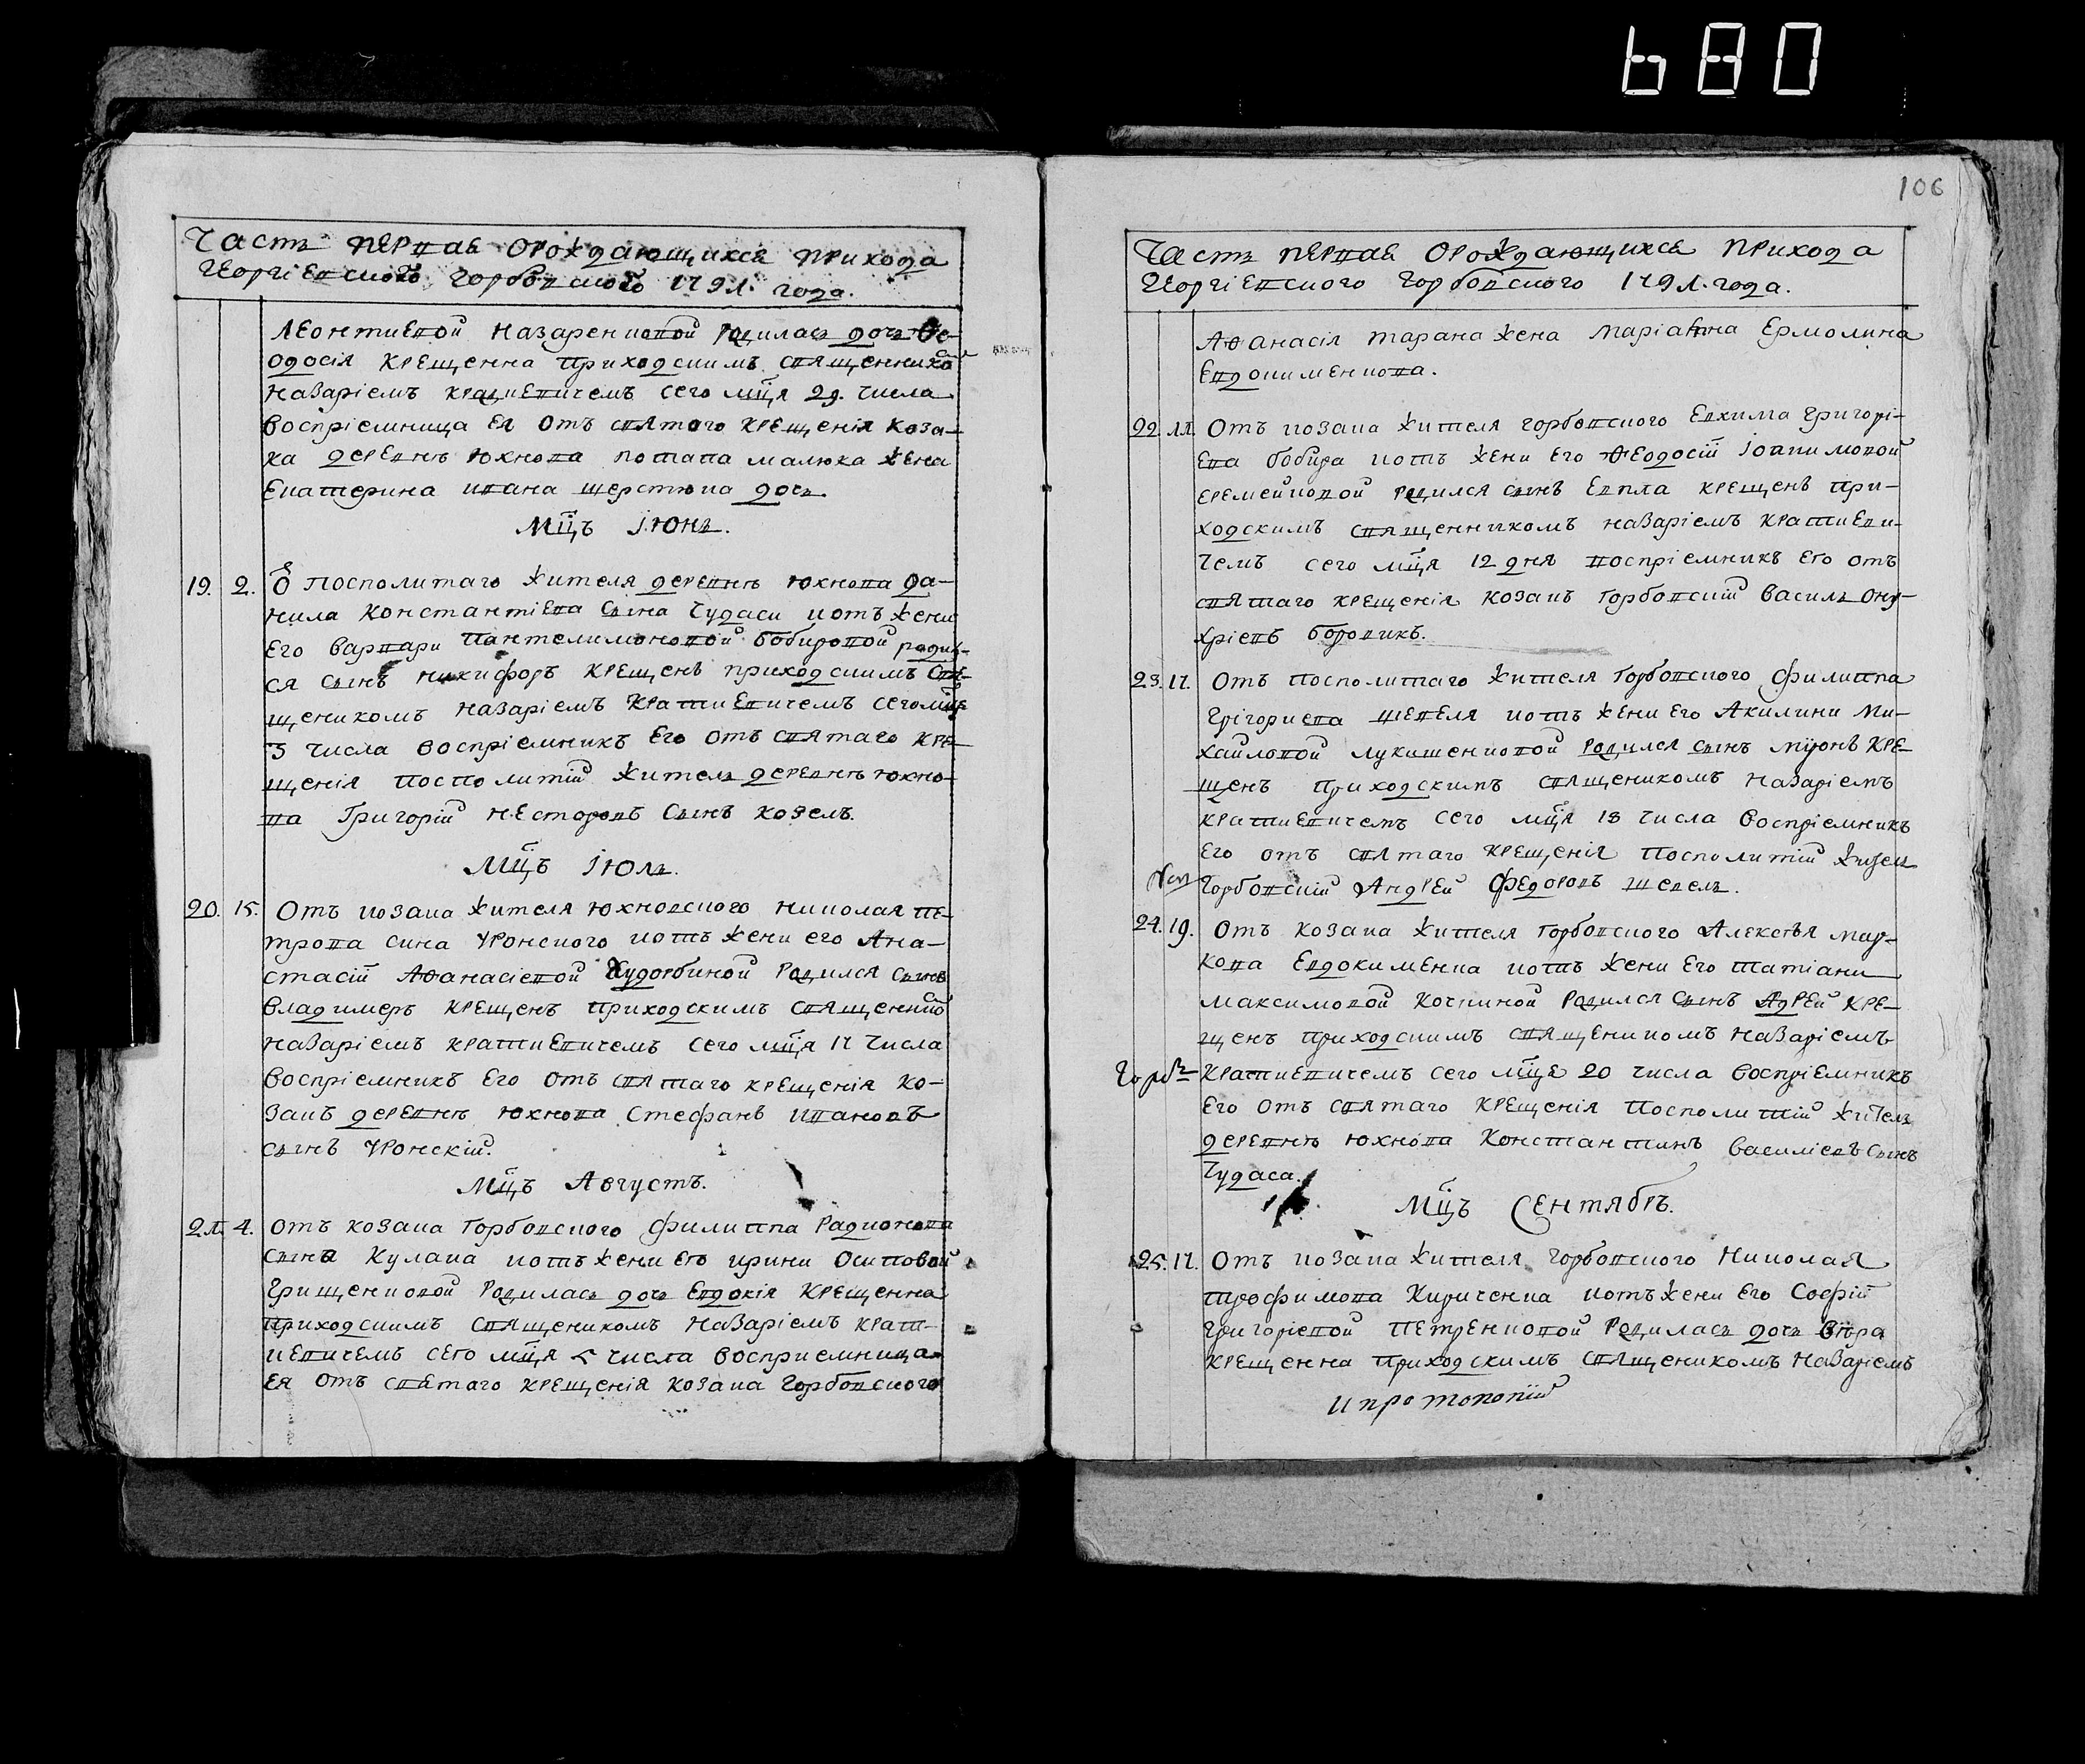 680
Часть первая орождающихся прихода
Георгіевского Горбовского 1791 года.
Леонтиевой Назаренковой родилась дочь Фе-
одосія крещенна приходскимъ священнико
Назаріемъ Крацкевичемъ сего мця 29 числа
воспріемница ея отъ святого крещенія коза-
ка деревнѣ Юхнова Потапа Малюка жена
Екатерина Ивана Шерстюка дочь.
Мцъ Іюнь.
19. 2. Ѿ посполитаго жителя деревнѣ Юхнова Да-
нила Константіева сына Чудаси и отъ жени
его Варвари Пантелимоновой Бобировой родил-
ся сынъ Никифоръ крещенъ приходскимъ свя-
щеникомъ Назаріемъ Крацкевичемъ сего мця
3 числа воспріемникъ его отъ святаго кре-
щенія посполитій житель деревнѣ Юхно-
ва Григорій Несторовъ сынъ Козелъ.
Мцъ Іюль.
20. 15. Отъ козака жителя Юхновского Николая Пе-
трова сина Уронского и отъ жени его Ана-
стасій Афанасіевой Худорбиной родился сынъ
Владимеръ крещенъ приходскимъ священнико
Назаріемъ Крацкевичемъ сего мця 17 числа
воспріемникъ его отъ святаго крещенія ко-
закъ деревнѣ Юхнова Стефанъ Ивановъ
сынъ Уронскій.
Мцъ Августъ.
21. 4. Отъ козака Горбовского Филиппа Радионова
сына Кулака и отъ жени его Ирини Осиповой
Грищенковой родилась дочь Евдокія крещенна
приходскимъ священикомъ Назаріемъ Крац-
кевичемъ сего мця 5 числа восприемница
ея отъ святаго крещенія козака Горбовского
106
Часть первая орождающихся прихода
Георгіевского Горбовского 1791 года.
Афанасія Тарана жена Маріанна Ермолина
Евдокименкова.
22. 11. Отъ козака жителя Горбовского Евхима Григорі-
ева Бобира и отъ жени его Феодосій Іоакимовой
Еремейковой родился сынъ Евпла крещенъ при-
ходскимъ священникомъ Назаріемъ Крацкеви-
чемъ сего мця 12 дня воспріемникъ его отъ
святаго крещенія козакъ Горбовскій Василь Ону-
хріевъ Бородикъ.
23. 17. Отъ посполитаго жителя Горбовского Филиппа
Грігориева Шевеля и отъ жени его Акилини Ми-
хайловой Лукашенковой родился сынъ Муронъ кре-
щенъ приходскимъ священикомъ Назаріемъ
Крацкевичемъ сего мця 18 числа воспріемникъ
его отъ святаго крещенія посполитій житель
Горбовскій Андрей Федоровъ Шевель.
24. 19. Отъ козака жителя Горбовского Алексѣя Мар-
кова Евдокименка и отъ жени его Татіани
Максимовой Кочкиной родился сынъ Адрей кре-
щенъ приходскимъ священикомъ Назаріемъ
Крацкевичемъ сего мця 20 числа воспріемникъ
его отъ святаго крещенія посполитій житель
деревнѣ Юхнова Константинъ Василіевъ сынъ
Чудаса.
Мцъ Сентябрь.
25. 17. Отъ козака жителя Горбовского Николая
Трофимова Кириченка и отъ жени его Софій
Григоріевой Петренковой родилась дочь Вѣра
крещенна приходскимъ священикомъ Назаріемъ
и протопопій